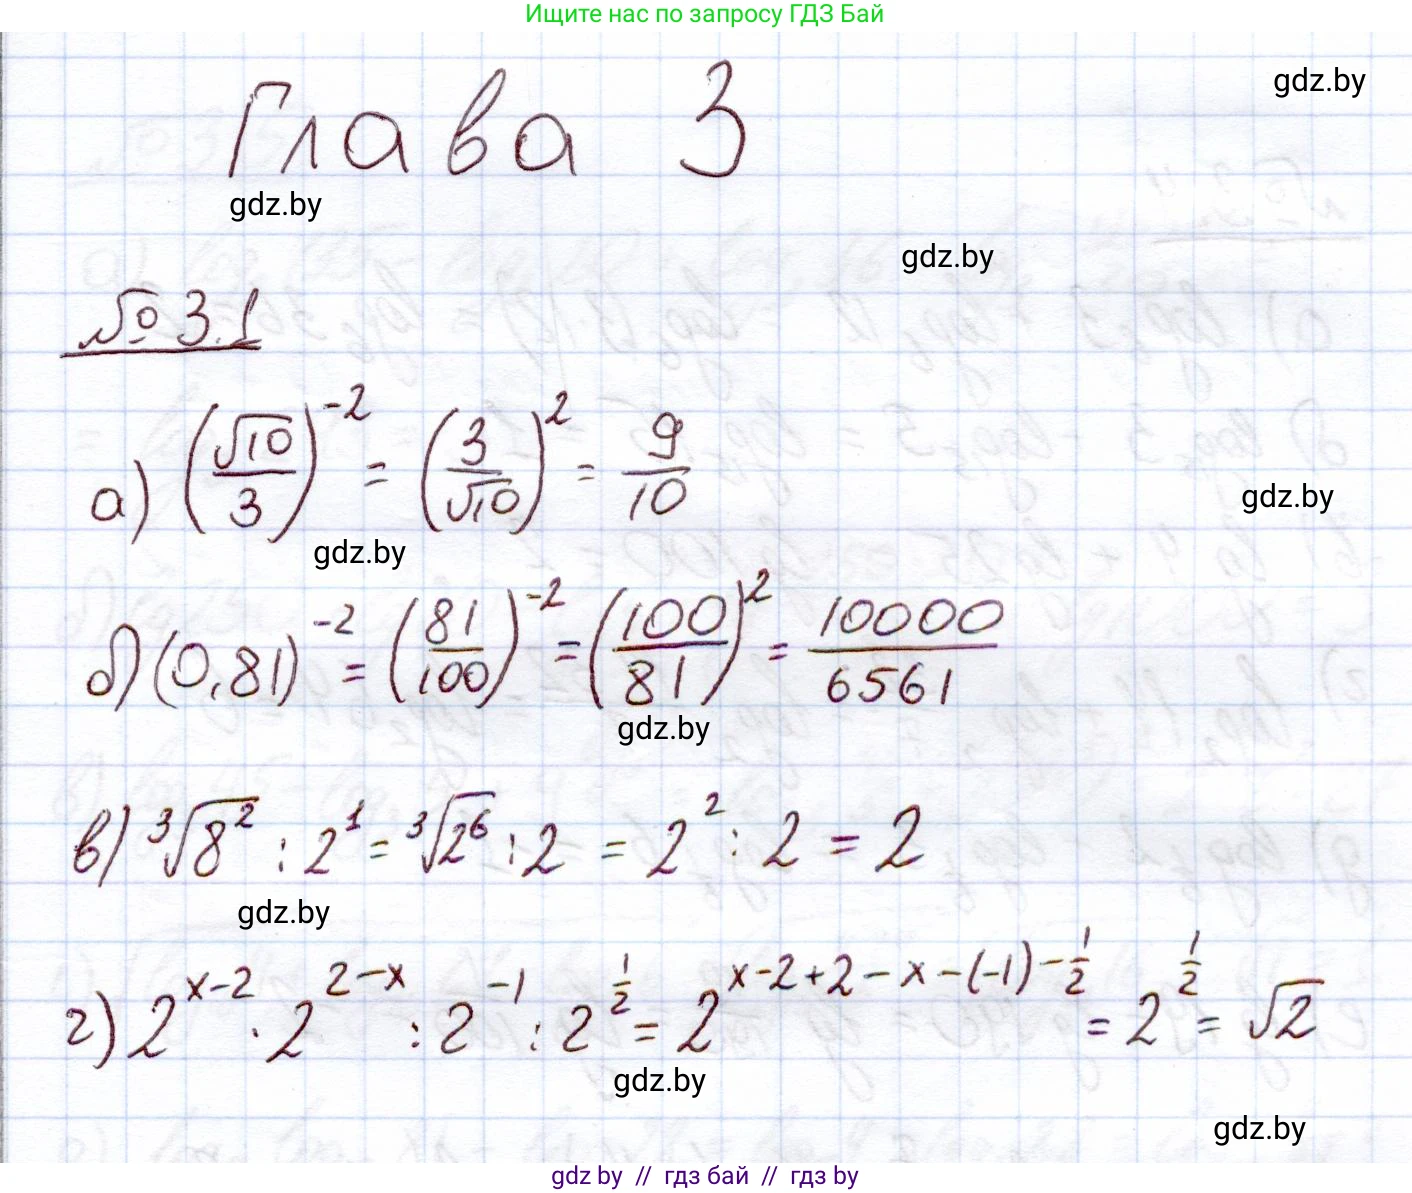 Ищите нас по запросу ГДЗ Бай
Глава 3
gdz.by
gdz.by
gdz.by
№ 3.1
а) (√10/3)^-2 = (3/√10)^2 = 9/10
gdz.by
gdz.by
б) (0,81)^-2 = (81/100)^-2 = (100/81)^2 = 10000/6561
gdz.by
в) ∛8^2 : 2^1 = ∛2^6 : 2 = 2^2 : 2 = 2
gdz.by
г) 2^(x-2) · 2^(2-x) : 2^-1 : 2^(1/2) = 2^(x-2+2-x-(-1)-1/2) = 2^(1/2) = √2
gdz.by
gdz.by
gdz.by // гдз бай // гдз by